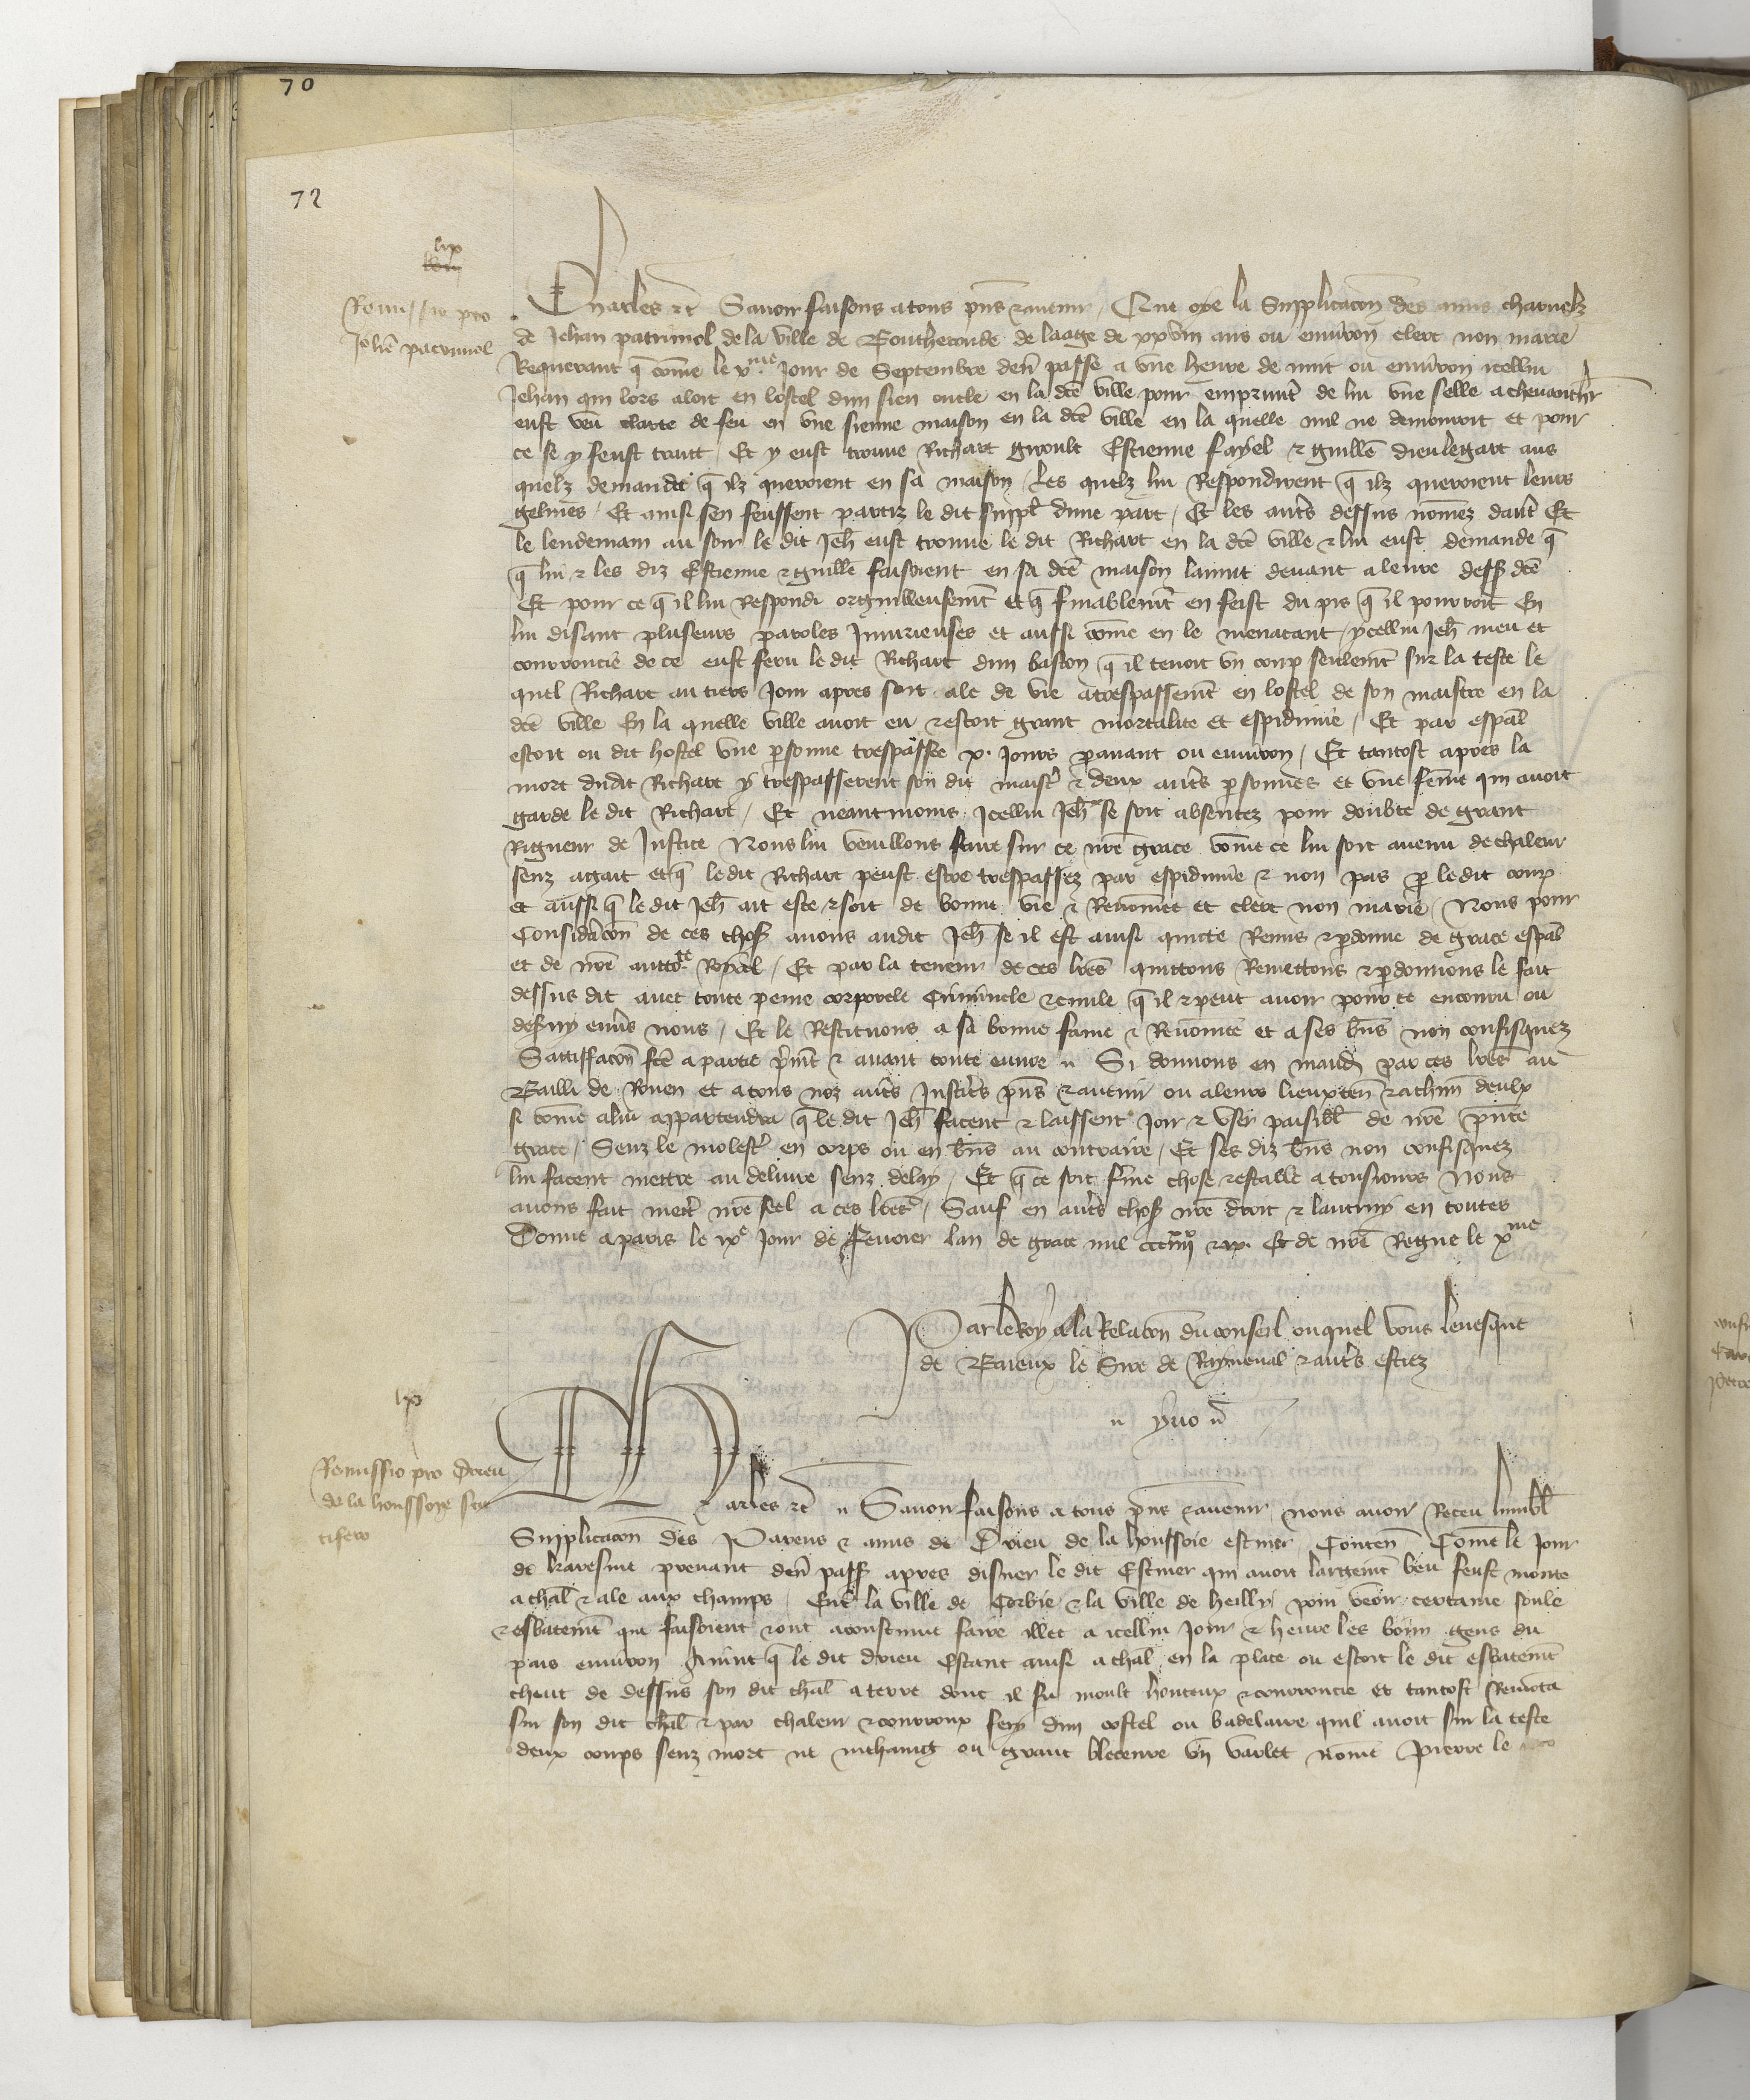 70
72
lix
Remissio pro
Johẽ patrimol
Charles etc̃ Savoir faisons a tous pñs et avenir, Que oye la Supplicacõn des amis charnelz
de Jehan patrimol de la ville de Boutheronde de laage de xxviij ans ou environ clerc non marie
Requerant q̃ cõme le xme Jour de Septembre deñ passe a une heure de nuit ou environ icellui
Jehan qui lors aloit en lostel dun sien oncle en la dcẽ ville pour empruntr̃ de lui une selle a chevauchr̃
eust veu clarte de feu en une sienne maison en la dcẽ ville en la quelle nul ne demouroit et pour
ce se y feust trait, Et y eust trouve Richart Giroult Estienne Fayel et guillẽ dieulegart aus
quelz demanda q̃ ilz queroient en sa maison, Les quelz lui Respondirent q̃ ilz queroient leurs
gelines, Et ainsi sen feussent partiz le dit supplt̃ dune part, Et les autr̃s dessus nõmez dautr̃ Et
le lendemain au soir le dit Jeh̃ eust trouve le dit Richart en la dcẽ ville et lui eust demande q̃
q̃ lui et les diz Estienne et guillẽ faisoient en sa dcẽ maison la nuit devant a leure dess̃ dcẽ
Et pour ce q̃ il lui Respondi orguilleusemt̃ et q̃ finablemt̃ en feist du pis q̃ il pourroit En
lui disant plusieurs paroles Injurieuses et aussi cõme en le menacant, ycellui Jeh̃ meu et
courroucie de ce eust feru le dit Richart dun baston q̃ il tenoit un coup seulemt̃ sur la teste le
quel Richart au tiers Jour apres soit ale de vie a trespassemt̃ en lostel de son maistre en la
dcẽ ville En la quelle ville avoit eu et estoit grant mortalite et espidimie, Et par esp̃al
estoit ou dit hostel une p̃sonne trespassee x. Jours p̃avant ou environ, Et tantost apres la
mort dudit Richart y trespasserent son dit maistr̃ et deux autr̃s p̃sonnes et une fem̃e qui avoit
garde le dit Richart, Et neantmoins Jcellui Jeh̃ se soit absentez pour doubte de grant
Rigueur de Justice Nous lui veuillons faire sur ce nr̃e grace cõme ce lui soit avenu de chaleur
senz agait et q̃ ledit Richart peust estre trespassez par espidimie et non pas p̃ ledit coup
et aussi q̃ le dit Jeh̃ ait este et soit de bonne vie et Renõmee et clerc non marie, Nous pour
Consideracõn de ces chos̃ avons audit Jeh̃ se il est ainsi quicte Remis et p̃donne de grace esp̃al
et de nr̃e auttorite Royal, Et par la teneur de ces lr̃es quittons Remettons et p̃donnons le fait
dessus dit avec toute peine corporele Criminele et civile q̃ il a et peut avoir pour ce encouru ou
desservy envr̃s nous, Et le Restituons a sa bonne fame et Renõmee et a ses biẽs non confisquez
Satiffacõn fcẽ a partie p̃mt̃ et avant toute euvre Si donnons en mand̃ par ces lr̃es au
Bailli de Rouen et a tous noz autr̃s Justicr̃s pñs et avenir ou a leurs lieuxteñ et a chũn deulx
si cõme a lui appartendra q̃ le dit Jeh̃ facent et laissent Joir et user paisibl̃ de nr̃e p̃nte
grace, Senz le molestr̃ en corps ou en biẽs au contraire, Et ses diz biẽs non confisquez
lui facent mettre au delivre senz delay, Et q̃ ce soit fer̃me chose et estable a tousiours Nous
avons fait mettr̃ nr̃e seel a ces lr̃es, Sauf en autr̃s chos̃ nr̃e droit et lautruy en toutes
Donne a paris le ixe Jour de fevrier lan de grace mil ccciiiixx et ix. Et de nr̃e Regne le xme
Par le Roy a la Relacõn du conseil ouquel vous levesque
de Baieux le Sire de Rayneval et autr̃s estiez
yvo
lx
Remissio pro Drieu
de la houssoye scu
tifero
Charles etc̃ Savoir faisons a tous p̃ns et avenir nous avoir Receu lumbl̃
Supplicacõn des Parens et amis de Drieu de la houssoie escuier Conteñ Cõme le Jour
de karesme prenant deñ pass̃ apres disner le dit Escuier qui avoit largemt̃ beu feust monte
a chal̃ et ale aux champs, Entr̃ la ville de Corbie et la ville de heilly pour veoir certaine soule
et esbatemt̃ que faisoient et ont acoustume faire illec a icellui Jour et heure les bonn gens du
pais environ Avint q̃ le dit drieu Estant ainsi a chal̃ en la place ou estoit le dit esbatemt̃
cheut de dessus son dit chal̃ a terre dont il fu moult honteux et courroucie et tantost Remonta
sur son dit chal̃ et par chaleur et courroux fery dun costel ou badelaire quil avoit sur la teste
deux coups senz mort ne mehaing ou grant bleceure un varlet nõme Pierre le